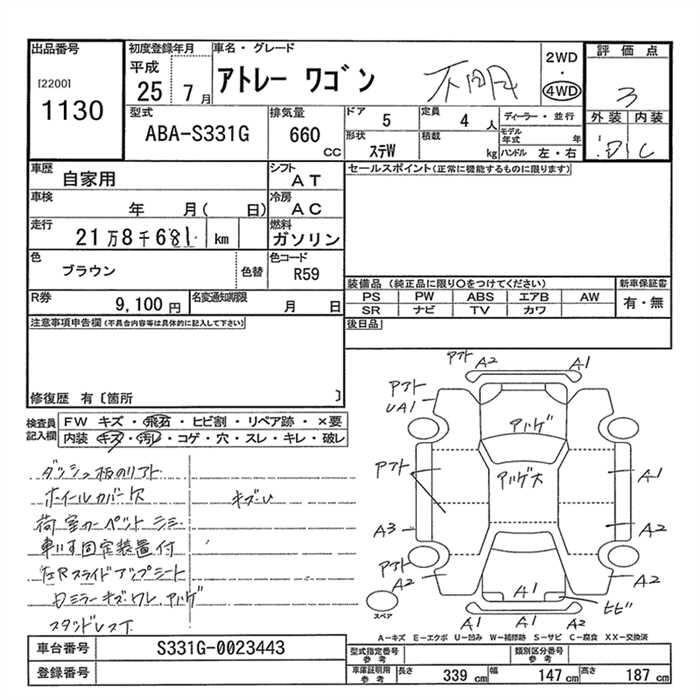 出品番号
[2200]
1130
初度登録年月
平成
25 7月
車名・グレード
アトレー ワゴン
不明
2WD
・
4WD
評価点
3
外装 内装
D C
型式
ABA-S331G
排気量
660
CC
ドア 5
定員 4 人
ディーラー・並行
形状 ステW
積載 kg
モデル年式 年
ハンドル 左・右
車歴
自家用
シフト
AT
セールスポイント(正常に機能するものに限ります)
車検
年 月( 日)
冷房
AC
走行
21万8千681 km
燃料
ガソリン
色
ブラウン
色替
色コード
R59
R券
9,100円
名変通知期限
月 日
装備品 (純正品に限り○をつけてください)
PS PW ABS エアB AW
SR ナビ TV カワ
新車保証書
有・無
後日品
注意事項申告欄(不具合内容等は具体的に記入して下さい)
修復歴 有〔箇所 〕
検査員記入欄
FW キズ・飛石・ヒビ割・リペア跡・×要
内装 キズ・汚レ・コゲ・穴・スレ・キレ・破レ
ダッシュ板のリフト
ホイールカバー欠
キズU
荷室カーペットシミ
車いす固定装置付
左Rスライドアップシート
ミラーキズワレ ハゲ
スタッドレス
アフト A2 A1
アフト
UA1
ハゲ
アフト
ハゲ大
A1
A3
A2
アフト
A2
A2
A1
ヒビ
A1 A1
スペア
A-キズ E-エクボ U-凹み W-補修跡 S-サビ C-腐食 XX-交換済
車台番号
S331G-0023443
登録番号
型式指定番号
参考
類別区分番号
参考
車庫証明用
参考
長さ 339 cm 幅 147 cm 高さ 187 cm